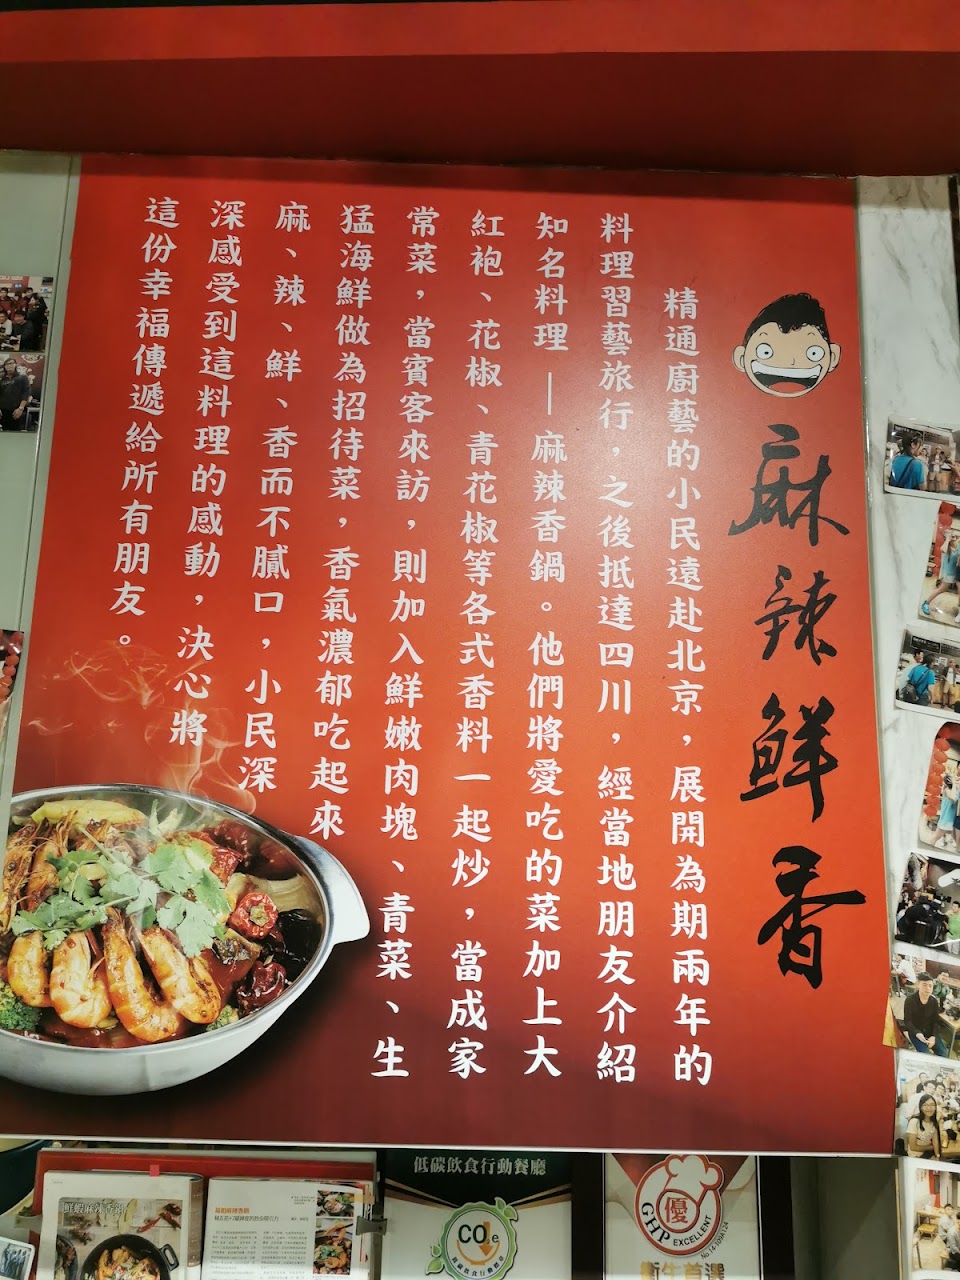 麻辣鮮香
精通廚藝的小民遠赴北京，展開為期兩年的
料理習藝旅行，之後抵達四川，經當地朋友介紹
知名料理 — 麻辣香鍋。他們將愛吃的菜加上大
紅袍、花椒、青花椒等各式香料一起炒，當成家
常菜，當賓客來訪，則加入鮮嫩肉塊、青菜、生
猛海鮮做為招待菜，香氣濃郁吃起來
麻、辣、鮮、香而不膩口，小民深
深感受到這料理的感動，決心將
這份幸福傳遞給所有朋友。
鮮蝦麻辣香鍋
低碳飲食行動餐廳
CO₂e
優
GHP EXCELLENT
衛生首選